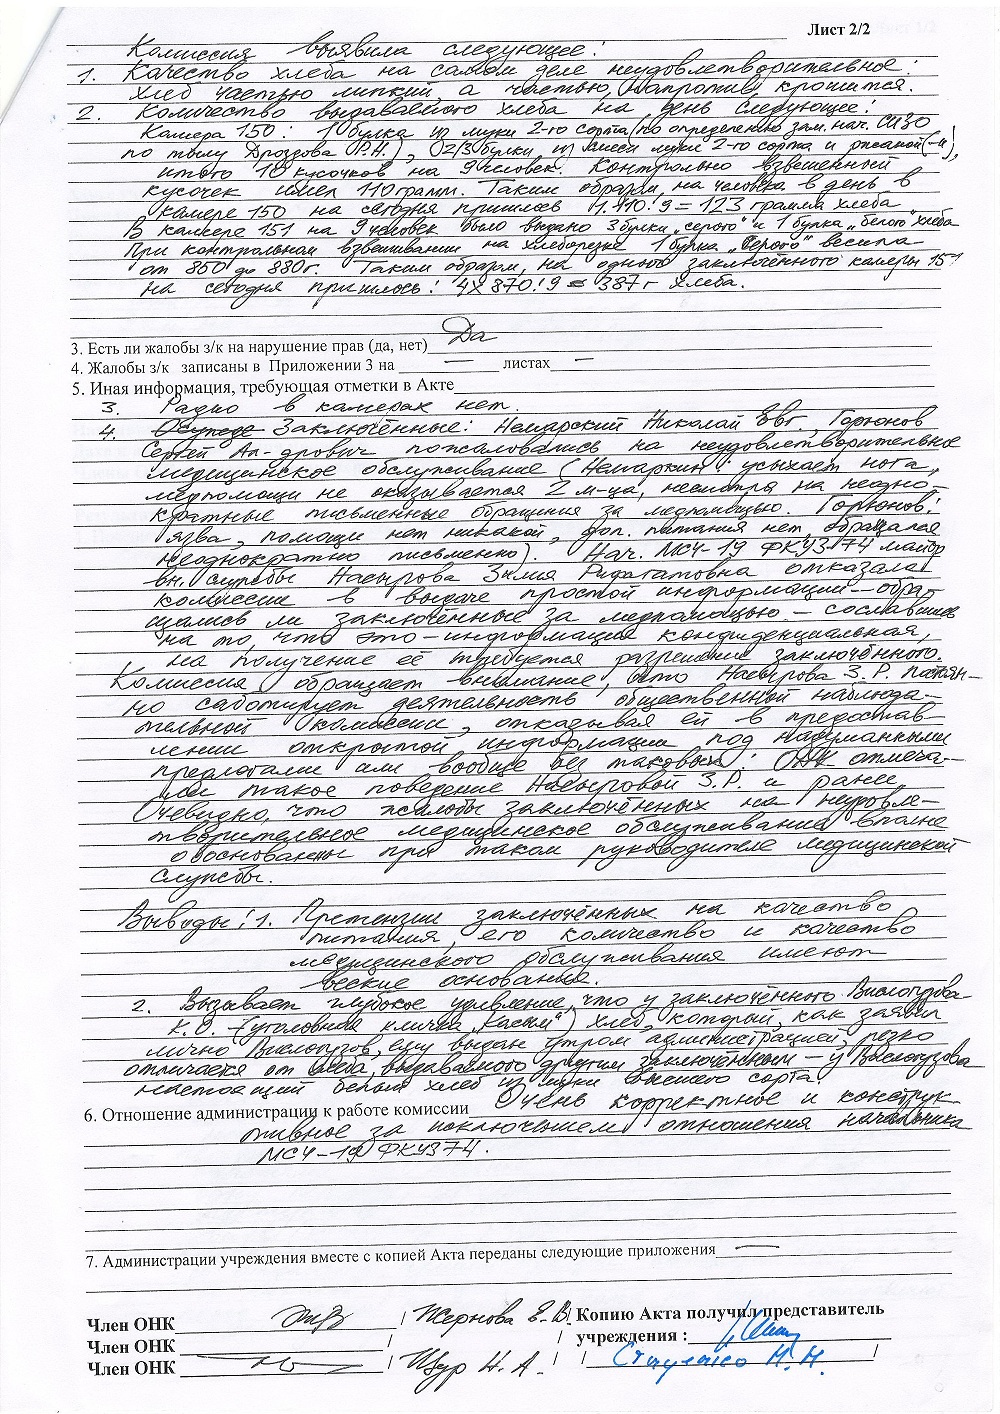 Лист 2/2
Комиссия выявила следующее:
1. Качество хлеба на самом деле неудовлетворительное:
хлеб частью липкий, а частью, напротив, крошится.
2. Количество выдаваемого хлеба на день следующее:
Камера 150: 1 булка из муки 2-го сорта (по определению зам. нач. СИЗО
по тылу Дроздова Р.Н.), 2/3 булки из смеси муки 2-го сорта и ржаной(-й),
итого 10 кусочков на 9 человек. Контрольно взвешенный
кусочек имел 110 грамм. Таким образом, на человека в день в
камере 150 на сегодня пришлось 11.110:9 = 123 грамма хлеба
В камере 151 на 9 человек было выдано 3 булки „серого" и 1 булка „белого" хлеба
При контрольном взвешивании на хлеборезке 1 булка „серого" весила
от 850 до 880г. Таким образом, на одного заключённого камеры 151
на сегодня пришлось: 4х870:9 = 387 г хлеба.
3. Есть ли жалобы з/к на нарушение прав (да, нет) Да
4. Жалобы з/к записаны в Приложении 3 на — листах —
5. Иная информация, требующая отметки в Акте
3. Радио в камерах нет.
4. Заключённые: Немарский Николай Евг., Горюнов
Сергей Ал-дрович пожаловались на неудовлетворительное
медицинское обслуживание (Немаркин: усыхает нога,
медпомощи не оказывается 2 м-ца, несмотря на неодно-
кратные письменные обращения за медпомощью. Горюнов:
язва, помощи нет никакой, доп. питания нет, обращался
неоднократно письменно). Нач. МСЧ-19 ФКУЗ-74 майор
вн. службы Насырова Зилия Рифгатовна отказала
комиссии в выдаче простой информации – обра-
щались ли заключённые за медпомощью – сославшись
на то, что это – информация конфиденциальная,
на получение её требуется разрешение заключённого.
Комиссия обращает внимание, что Насырова З.Р. постоян-
но саботирует деятельность общественной наблюда-
тельной комиссии, отказывая ей в предостав-
лении открытой информации под надуманными
предлогами или вообще без таковых. ОНК отмеча-
ли такое поведение Насыровой З.Р. и ранее.
Очевидно, что жалобы заключённых на неудовле-
творительное медицинское обслуживание вполне
обоснованны при таком руководителе медицинской
службы.
Выводы: 1. Претензии заключённых на качество
питания, его количество и качество
медицинского обслуживания имеют
веские основания.
2. Вызывает глубокое удивление, что у заключённого Вислогузова
К.О. (уголовная кличка „Касым") хлеб, который, как заявил
лично Вислогузов, ему выдан утром администрацией, резко
отличается от хлеба, выдаваемого другим заключённым – у Вислогузова
настоящий белый хлеб из муки высшего сорта.
6. Отношение администрации к работе комиссии Очень корректное и конструк-
тивное за исключением отношения начальника
МСЧ-19 ФКУЗ 74.
7. Администрации учреждения вместе с копией Акта переданы следующие приложения —
Член ОНК / Жернова Е.В./ Копию Акта получил представитель
Член ОНК / / учреждения :
Член ОНК / Щур Н.А. / /